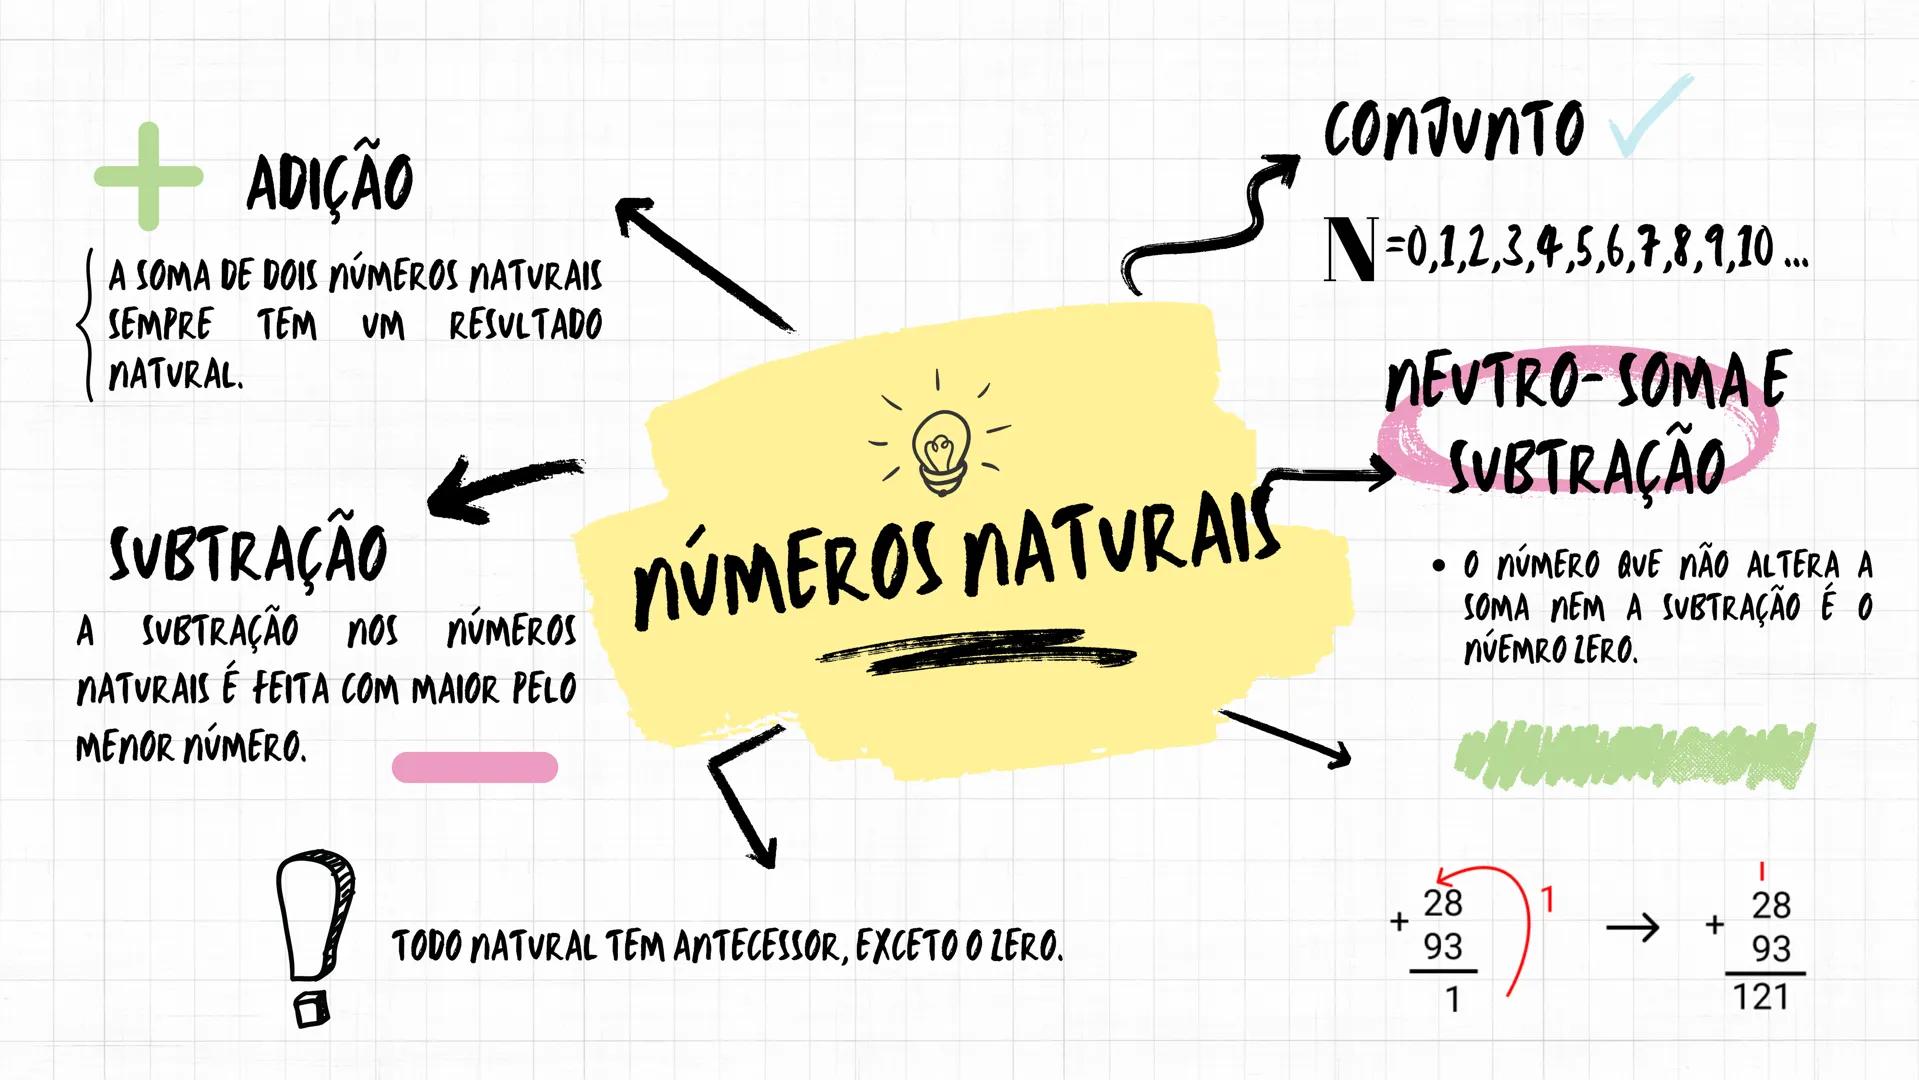 ADIÇÃO
A SOMA DE DOIS NÚMEROS NATURAIS
SEMPRE TEM UM RESULTADO
NATURAL.
SUBTRAÇÃO
A SUBTRAÇÃO NOS NÚMEROS
NATURAIS É FEITA COM MAIOR PELO
MENOR NÚMERO.
NÚMEROS NATURAIS
CONJUNTO
N=0,1,2,3,4,5,6,7,8,9,10 ...
NEUTRO-SOMA E
SUBTRAÇÃO
• O NÚMERO QUE NÃO ALTERA A
SOMA NEM A SUBTRAÇÃO É O
NÚEMRO ZERO.
TODO NATURAL TEM ANTECESSOR, EXCETO O ZERO.
1
+ 28
93
1
→
1
+ 28
93
121